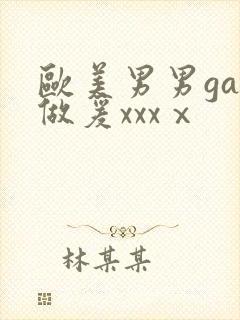 歐美男男ga
做爰xxxⅹ
林某某